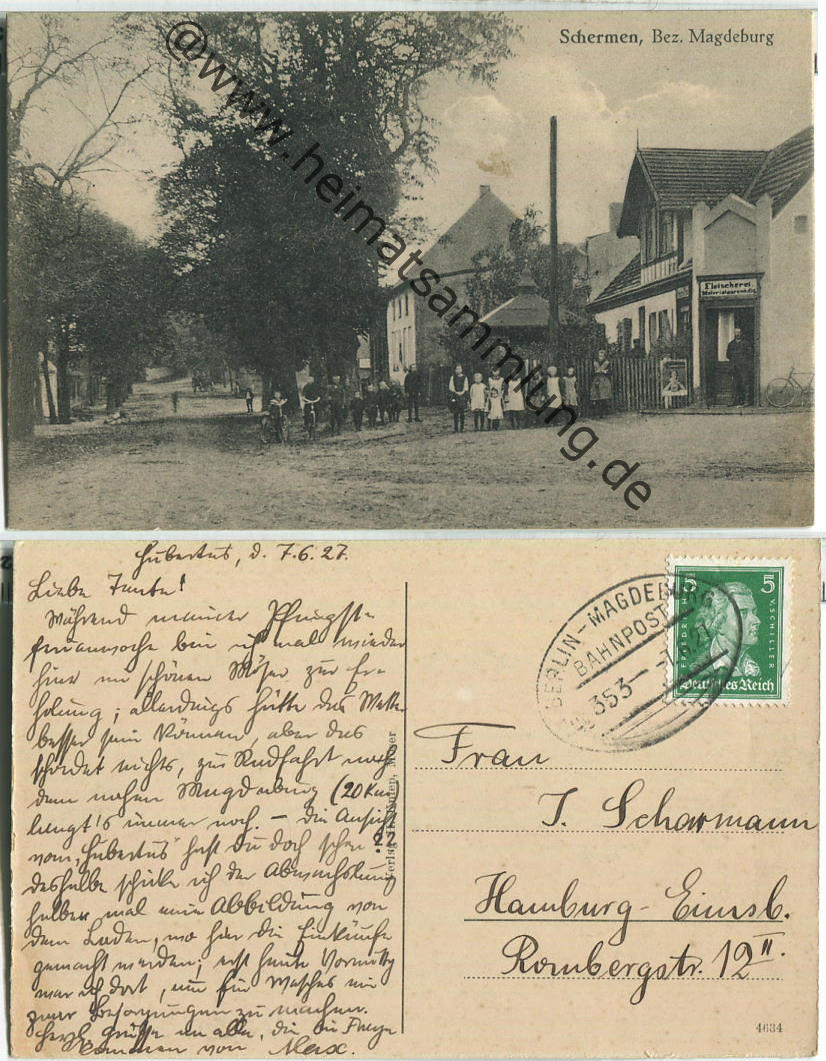 Schermen, Bez. Magdeburg
@www.heimatsammlung.de
Fleischerei
Materialwarenhdlg.
Hubertus, d. 7.6.27.
Liebe Tante!
Während meiner Pfingst-
ferienwoche bin ich mal wieder
hier im schönen Möser zur Er-
holung; allerdings hätte das Wetter
besser sein können, aber das
schadet nichts, zur Radfahrt nach
dem nahen Magdeburg (20 km
langt's immer noch – die Ansicht
vom „Hubertus" hast Du doch schon
deshalb schicke ich der Abwechslung
halber mal eine Abbildung von
dem Laden, wo hier die Einkäufe
gemacht werden; erst heute Vormittag
war ich dort, um für
zwei Besorgungen zu machen.
Herzl. Grüße an alle, die in Frage
kommen von Max.
Verlag Möser
BERLIN-MAGDEBURG
BAHNPOST
353
FRIEDRICH V SCHILLER
5 5
Deutsches Reich
Frau
J. Scharmann
Hamburg-Eimsb.
Rombergstr. 12 II.
4634